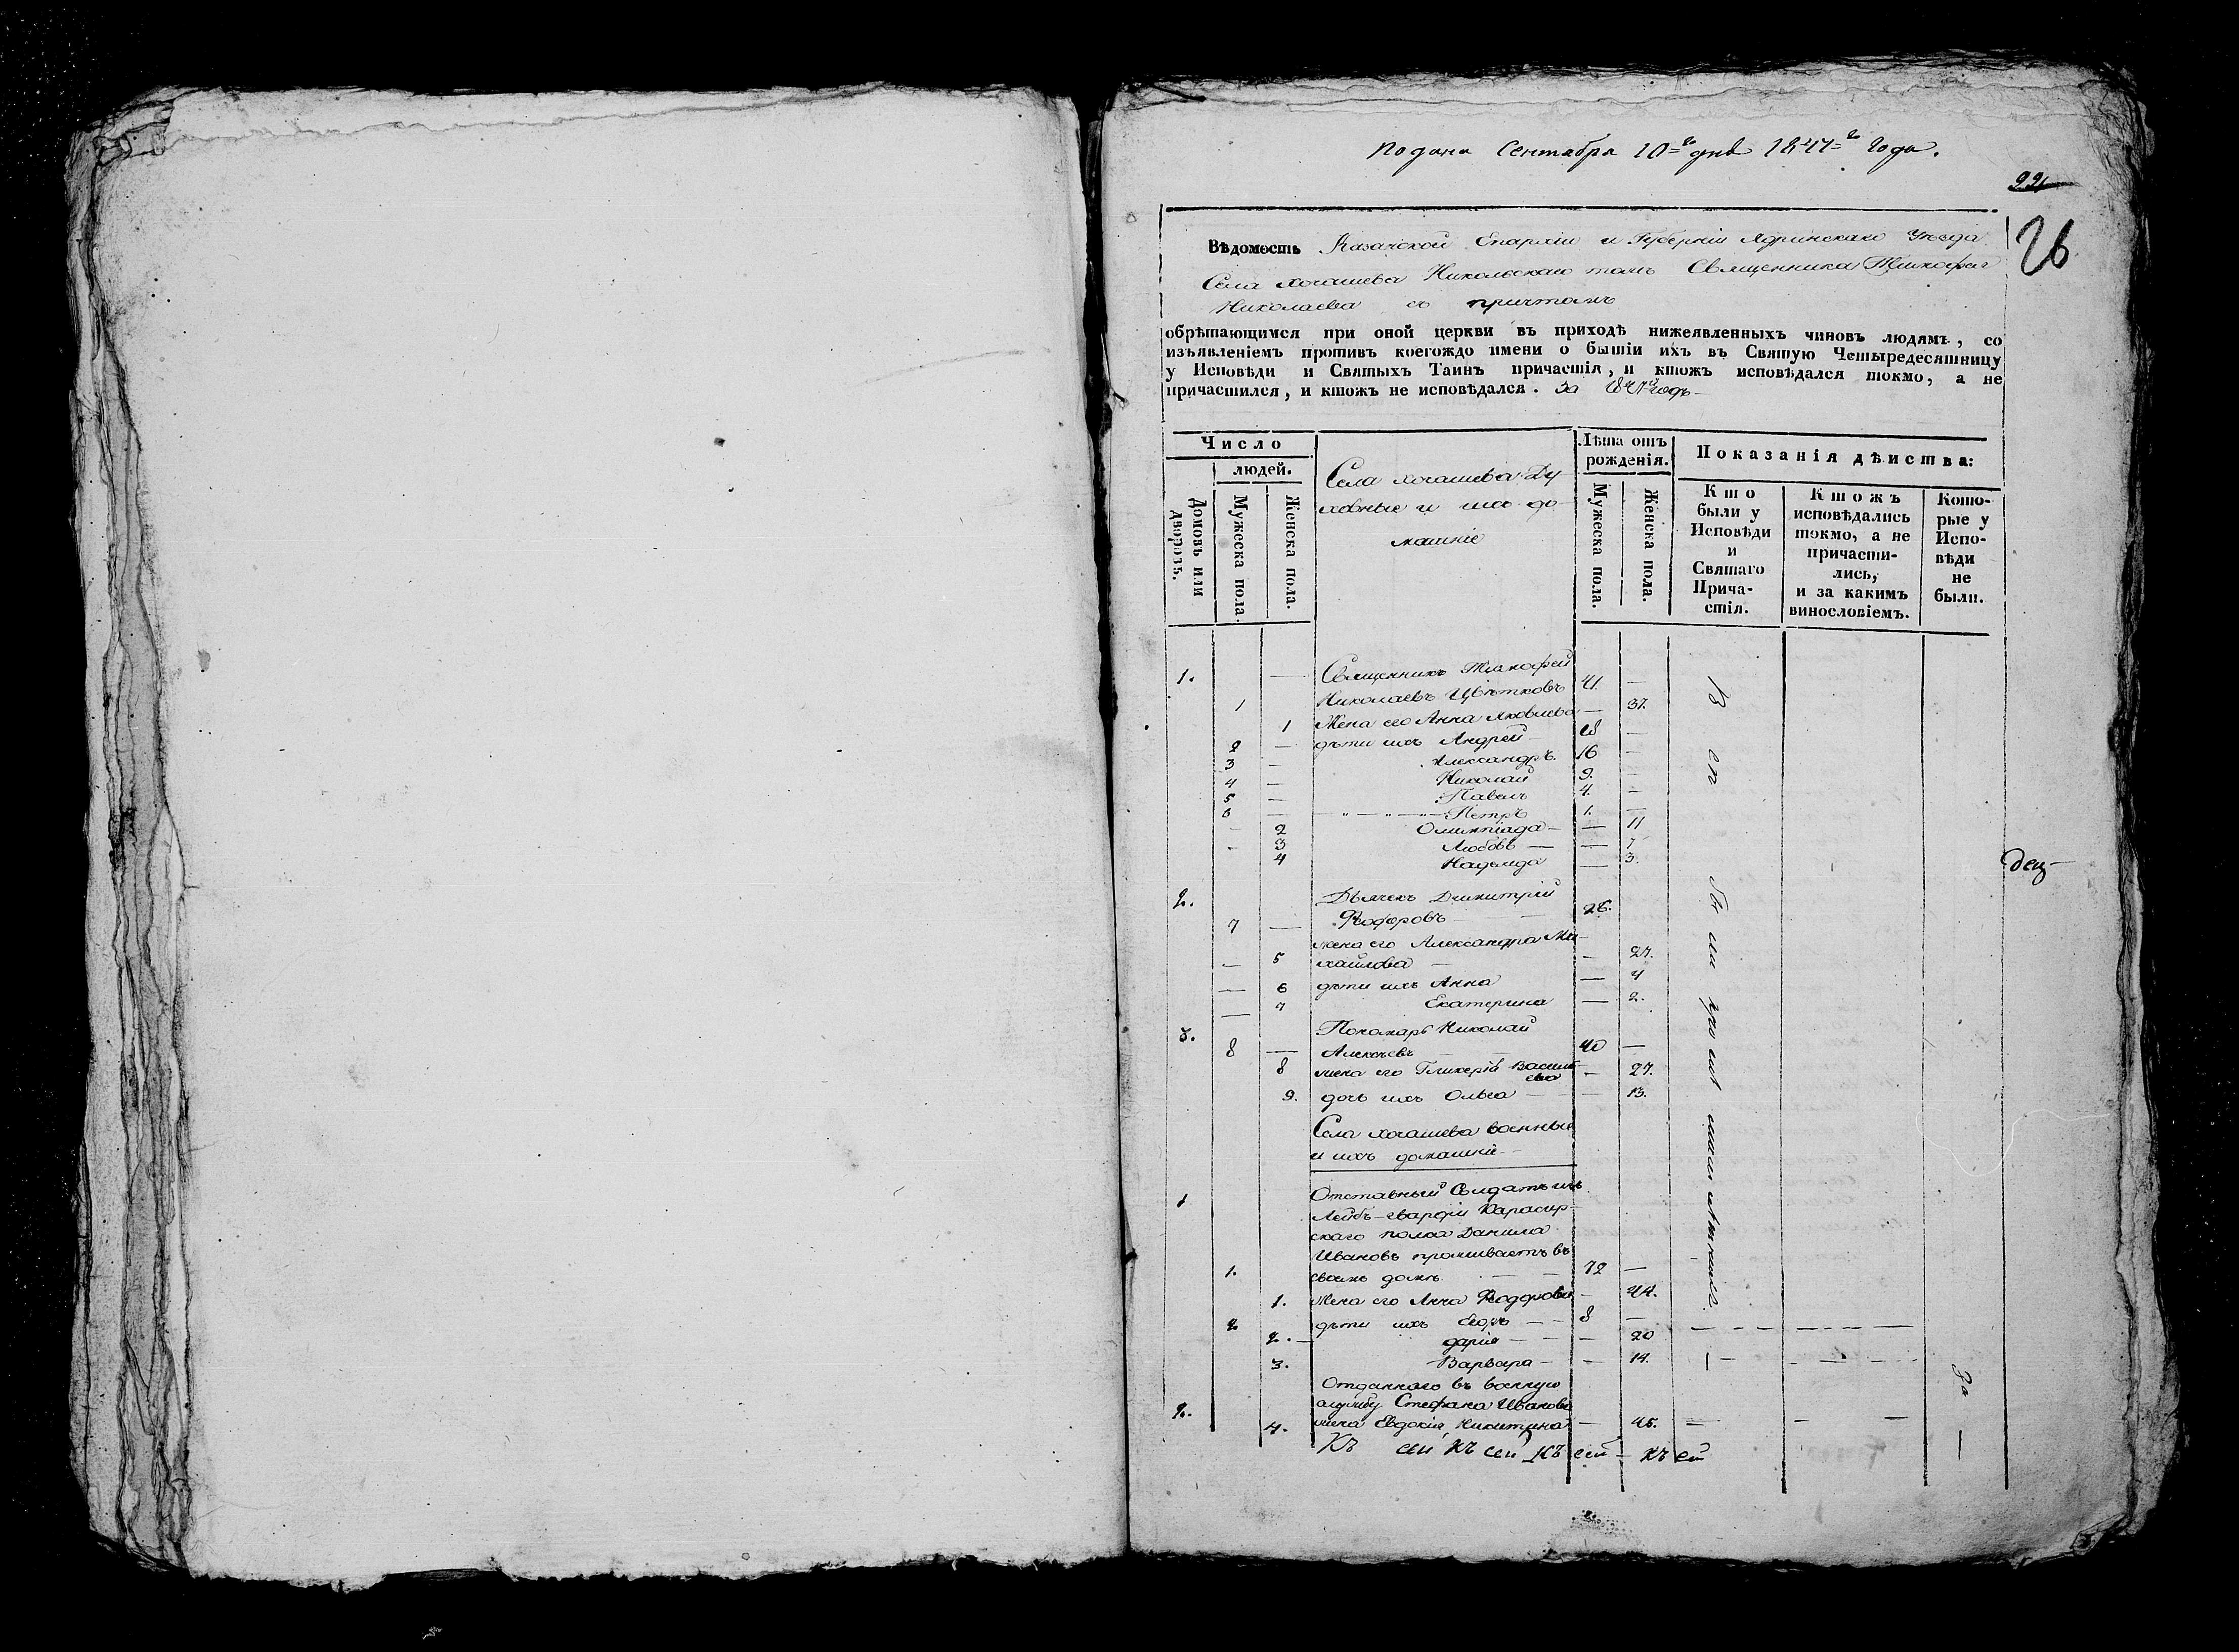 Подана Сентября 10=го дня 1847=го года.
221
26
Вѣдомость Казанской Епархіи и Губерніи Ядринскаго Уѣзда
Села Хочашева Никольскаго Священника Тимофея
Николаева съ причтомъ
обрѣтающимся при оной церкви въ приходѣ нижеявленныхъ чиновъ людямъ, со
изъявленіемъ противъ коегождо имени о бытіи ихъ въ Святую Четыредесятницу
у Исповѣди и Святыхъ Таинъ причастія, и ктожъ исповѣдался токмо, а не
причастился, и ктожъ не исповѣдался. За 1847 годъ
Число
людей.
Домовъ или дворовъ.
Мужеска пола.
Женска пола.
Села Хочашева Ду
ховные и ихъ до
машніе
Лѣта отъ
рожденія.
Мужеска пола.
Женска пола.
Показанія дѣйства:
Кто
были у
Исповѣди
и
Святаго
Прича-
стія.
Ктожъ
исповѣдались
токмо, а не
причасти-
лись,
и за какимъ
винословіемъ.
Кото-
рые у
Испо-
вѣди
не
были.
1. — Священникъ Тимофей
1 Николаевъ Цвѣтковъ 41. —
1 Жена его Анна Яковлева — 37.
2 — дѣти ихъ Андрей 18 —
3 — Александръ. 16 —
4 — Николай 9. —
5 — Павелъ 4. —
6 — Петръ 1. —
— 2 Олимпіада — — 11
- 3 Любовь — — 7
4 Надежда — 3.
2. Дьячекъ Димитрій
7 — Ѳедоровъ — 26.
жена его Александра Ми-
— 5 хайлова — — 27.
— 6 дѣти ихъ Анна — 4
— 7 Екатерина — 2.
3. Пономарь Николай
8 — Алексѣевъ 40 —
8 жена его Гликерія Василь
ева — 27.
9. дочь ихъ Ольга — — 13.
Села Хочашева военные
и ихъ домашніе
1 Отставный Солдатъ изъ
Лейбъ-гвардіи Кирасир-
скаго полка Данила
Ивановъ проживаетъ въ
1. своемъ домѣ. — 72 —
1. Жена его Анна Ѳеодорова — 44.
2 дѣти ихъ — 8 —
2. — дарія — — 20
3. Варвара — — 14. —
Отданнаго въ военную
службу Стефана Иванова
2. 4. жена Евдокія Никитина — 45. — — —
За
—
Къ сей Къ сей Къ сей — къ сей